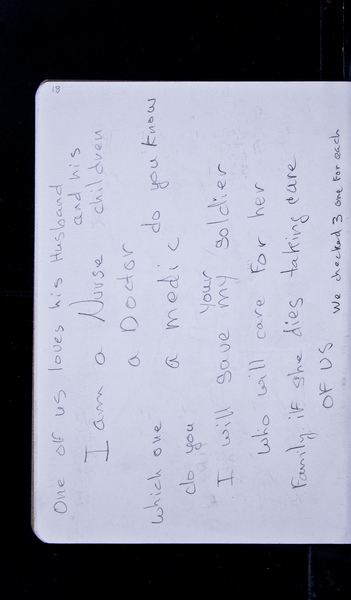 18
One of us loves his Husband
and his
I am a Nurse children
a Doctor
which one a medic do you know
do you your
I will save my soldier
who will care For her
Family if she dies taking care
OF US we checked 3 one for each